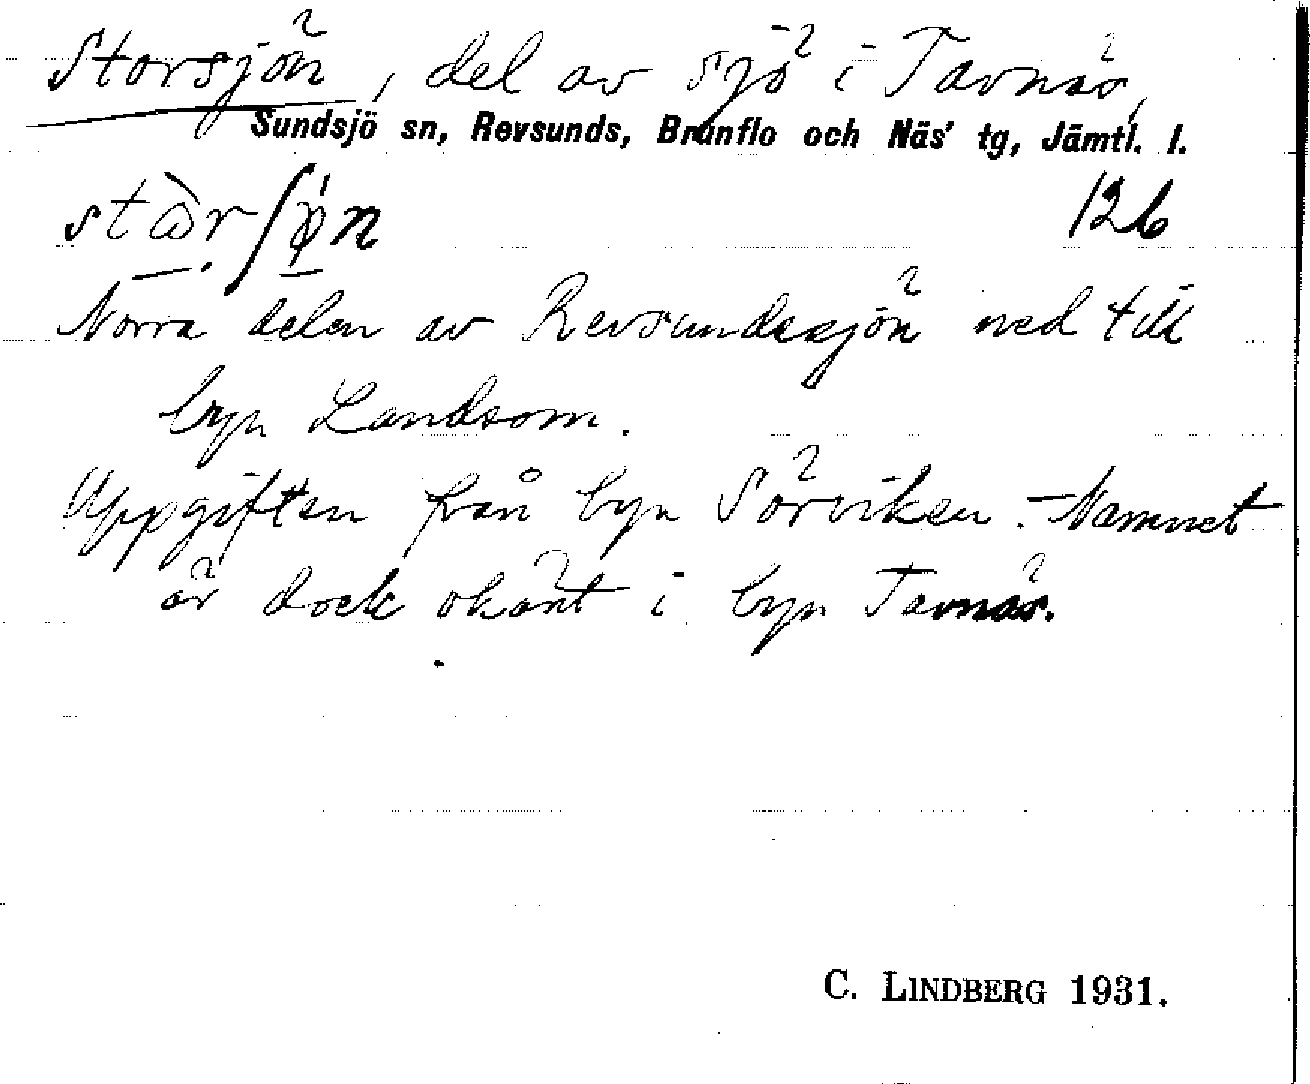 Storsjön, del av sjö i Tavnäs,
Sundsjö sn, Revsunds, Brunflo och Näs' tg, Jämtl. l.
126
Norra delen av Revsundssjön ned till
byn Landsom.
Uppgiften från byn Sörviken. - Namnet
är dock okänt i byn Tavnäs.
C. LINDBERG 1931.